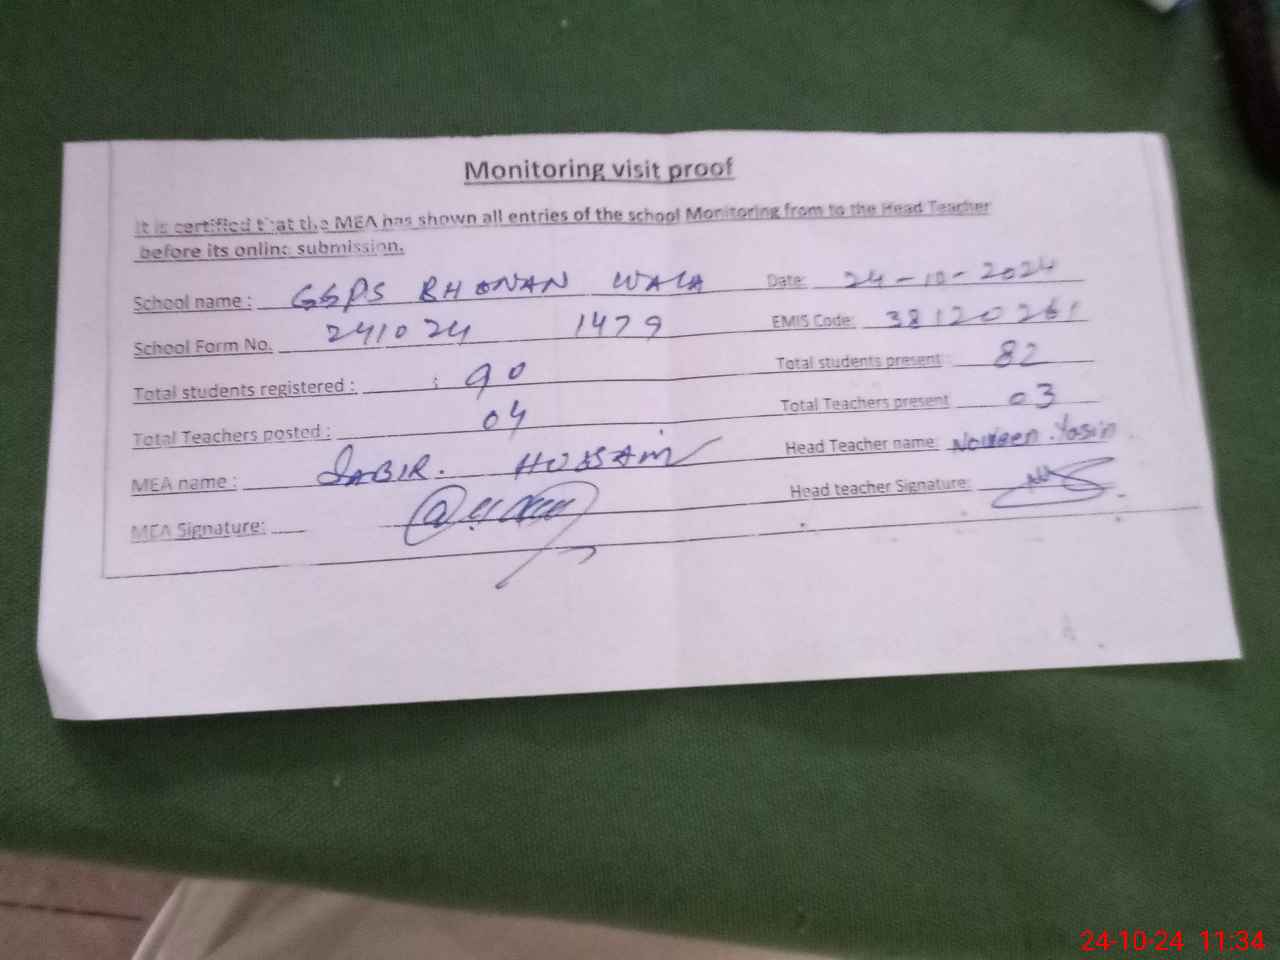 Monitoring visit proof
It is certified that the MEA has shown all entries of the school Monitoring from to the Head Teacher
before its online submission.
School name : GGPS BHONAN WALA Date: 24-10-2024
School Form No. 241024 1479 EMIS Code: 38120261
Total students registered : 90 Total students present : 82
Total Teachers posted : 04 Total Teachers present 03
MEA name : SABIR. HUSSAIN Head Teacher name: Noureen Yasin
MEA Signature: Head teacher Signature:
24-10-24 11:34